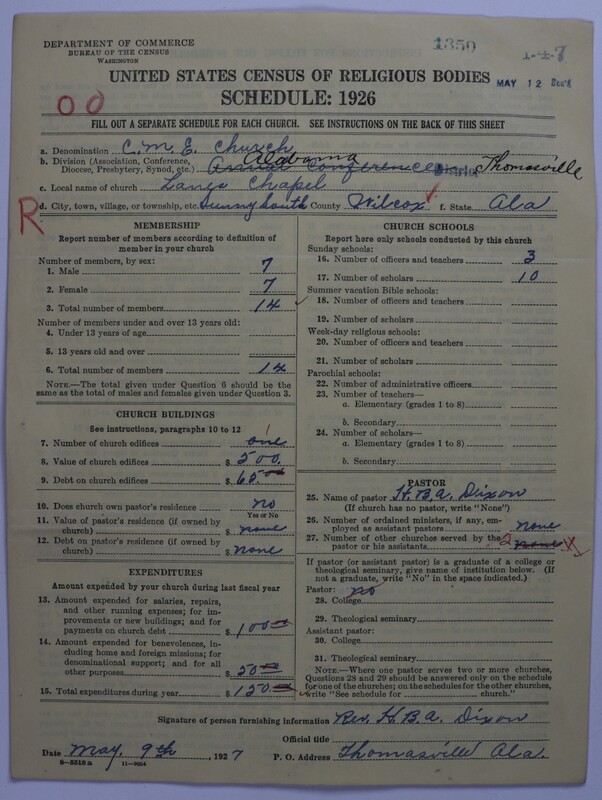 DEPARTMENT OF COMMERCE
BUREAU OF THE CENSUS
WASHINGTON
1350
1-2-7
UNITED STATES CENSUS OF RELIGIOUS BODIES
MAY 12
SCHEDULE: 1926
00
FILL OUT A SEPARATE SCHEDULE FOR EACH CHURCH. SEE INSTRUCTIONS ON THE BACK OF THIS SHEET
a. Denomination C. M. E. Church
b. Division (Association, Conference, Diocese, Presbytery, Synod, etc.) Alabama Conference Thomasville
c. Local name of church Langs Chapel
R
d. City, town, village, or township, etc. Sunny South County Wilcox f. State Ala
MEMBERSHIP
Report number of members according to definition of member in your church
Number of members, by sex:
1. Male 7
2. Female 7
3. Total number of members 14
Number of members under and over 13 years old:
4. Under 13 years of age
5. 13 years old and over
6. Total number of members 14
NOTE.—The total given under Question 6 should be the same as the total of males and females given under Question 3.
CHURCH BUILDINGS
See instructions, paragraphs 10 to 12
7. Number of church edifices one
8. Value of church edifices $ 500.
9. Debt on church edifices $ 65.00
10. Does church own pastor's residence? no
Yes or No
11. Value of pastor's residence (if owned by church) $ none
12. Debt on pastor's residence (if owned by church) $ none
EXPENDITURES
Amount expended by your church during last fiscal year
13. Amount expended for salaries, repairs, and other running expenses; for improvements or new buildings; and for payments on church debt $ 100.00
14. Amount expended for benevolences, including home and foreign missions; for denominational support; and for all other purposes $ 50.00
15. Total expenditures during year $ 150.00
CHURCH SCHOOLS
Report here only schools conducted by this church
Sunday schools:
16. Number of officers and teachers 3
17. Number of scholars 10
Summer vacation Bible schools:
18. Number of officers and teachers
19. Number of scholars
Week-day religious schools:
20. Number of officers and teachers
21. Number of scholars
Parochial schools:
22. Number of administrative officers
23. Number of teachers—
a. Elementary (grades 1 to 8)
b. Secondary
24. Number of scholars—
a. Elementary (grades 1 to 8)
b. Secondary
PASTOR
25. Name of pastor H. B. A. Dixon
(If church has no pastor, write "None")
26. Number of ordained ministers, if any, employed as assistant pastors none
27. Number of other churches served by the pastor or his assistants 2 none X
If pastor (or assistant pastor) is a graduate of a college or theological seminary, give name of institution below. (If not a graduate, write "No" in the space indicated.)
Pastor: no
28. College
29. Theological seminary
Assistant pastor:
30. College
31. Theological seminary
NOTE.—Where one pastor serves two or more churches, Questions 28 and 29 should be answered only on the schedule for one of the churches; on the schedules for the other churches, write "See schedule for church."
Signature of person furnishing information Rev. H. B. A. Dixon
Official title
Date May. 9th, 1927 P. O. Address Thomasville Ala.
8-5518 a 11-9054